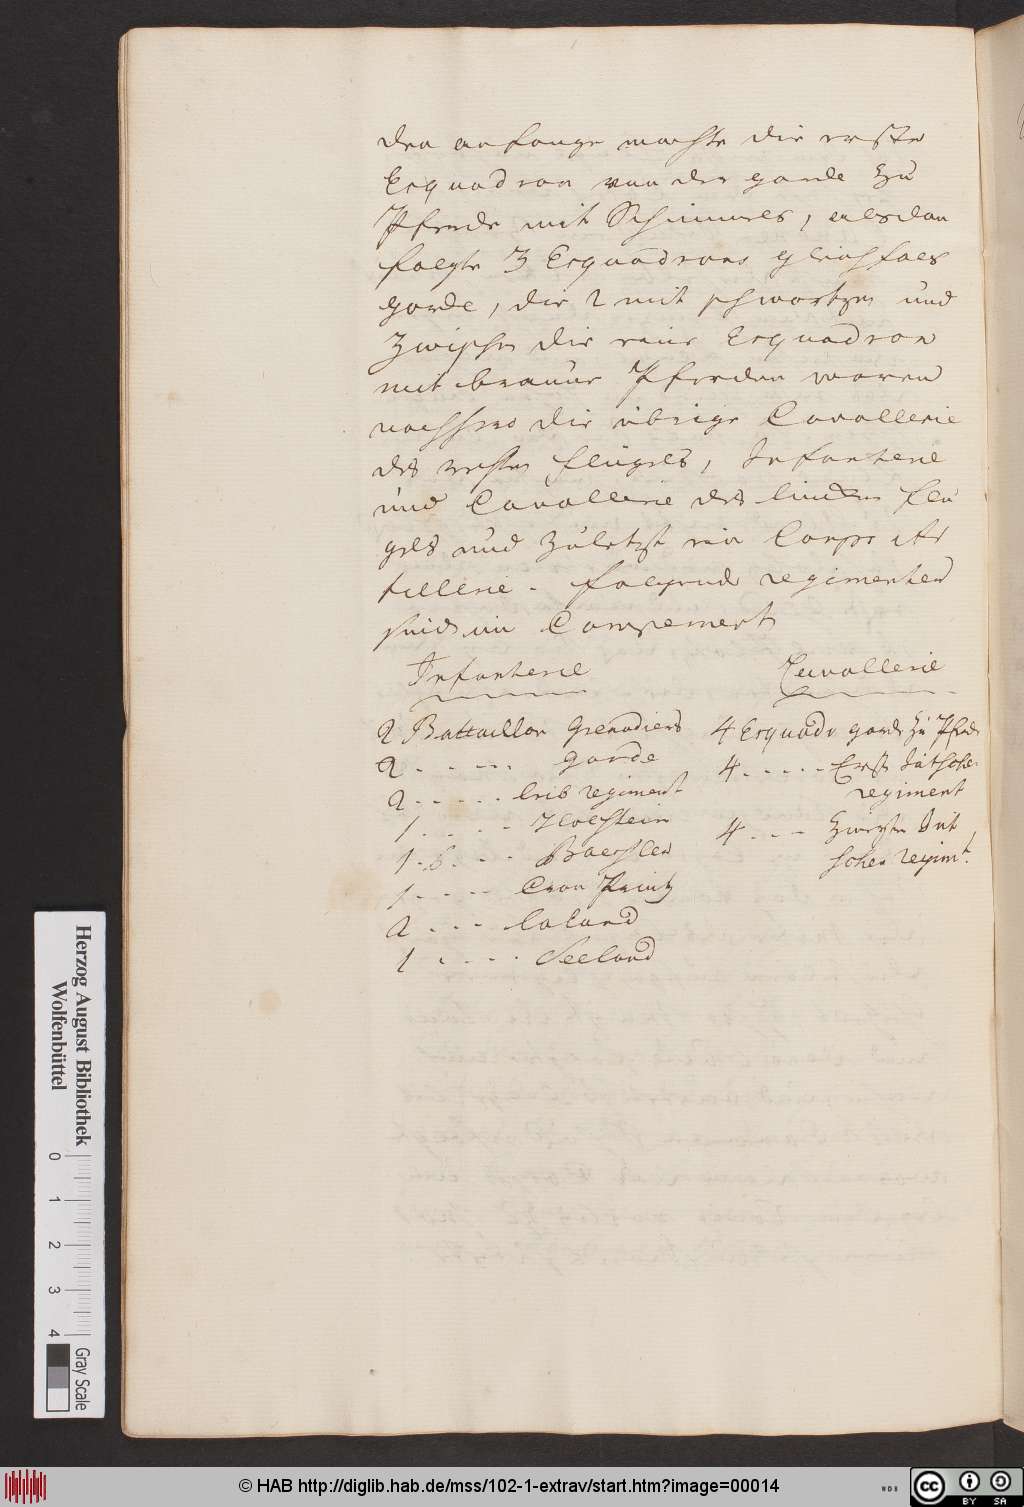 den anfange machte die erste
Esquadron von der garde zu
Pferde mit Schimmels, alsdan
folgte 3 Esquadrons gleichfals
garde, die 2 mit schwartzen und
zwischen die eine Esquadron
mit braune Pferden waren
nachhero die übrige Cavallerie
des rechten flügels, Infanterie
und Cavallerie des lincken flü
gels und zuletzt ein Corps Ar
tillerie. folgende regimenter
sind im Campement
Infanterie Cavallerie
2 Battaillon Grenadiers 4 Esquadr garde zu Pferde
2 - - - - - garde 4 - - - - - Erste Jütsche
2 - - - - - leib regiment regiment
1 - - - - Holstein 4 - - - zweyte Jüt
1 - - - - scher regimt.
1 - - - - Cron Printz
2 - - - Laland
1 - - - - Seeland
Herzog August Bibliothek
Wolfenbüttel
0 1 2 3 4
Gray Scale
© HAB http://diglib.hab.de/mss/102-1-extrav/start.htm?image=00014
WDB
cc BY SA